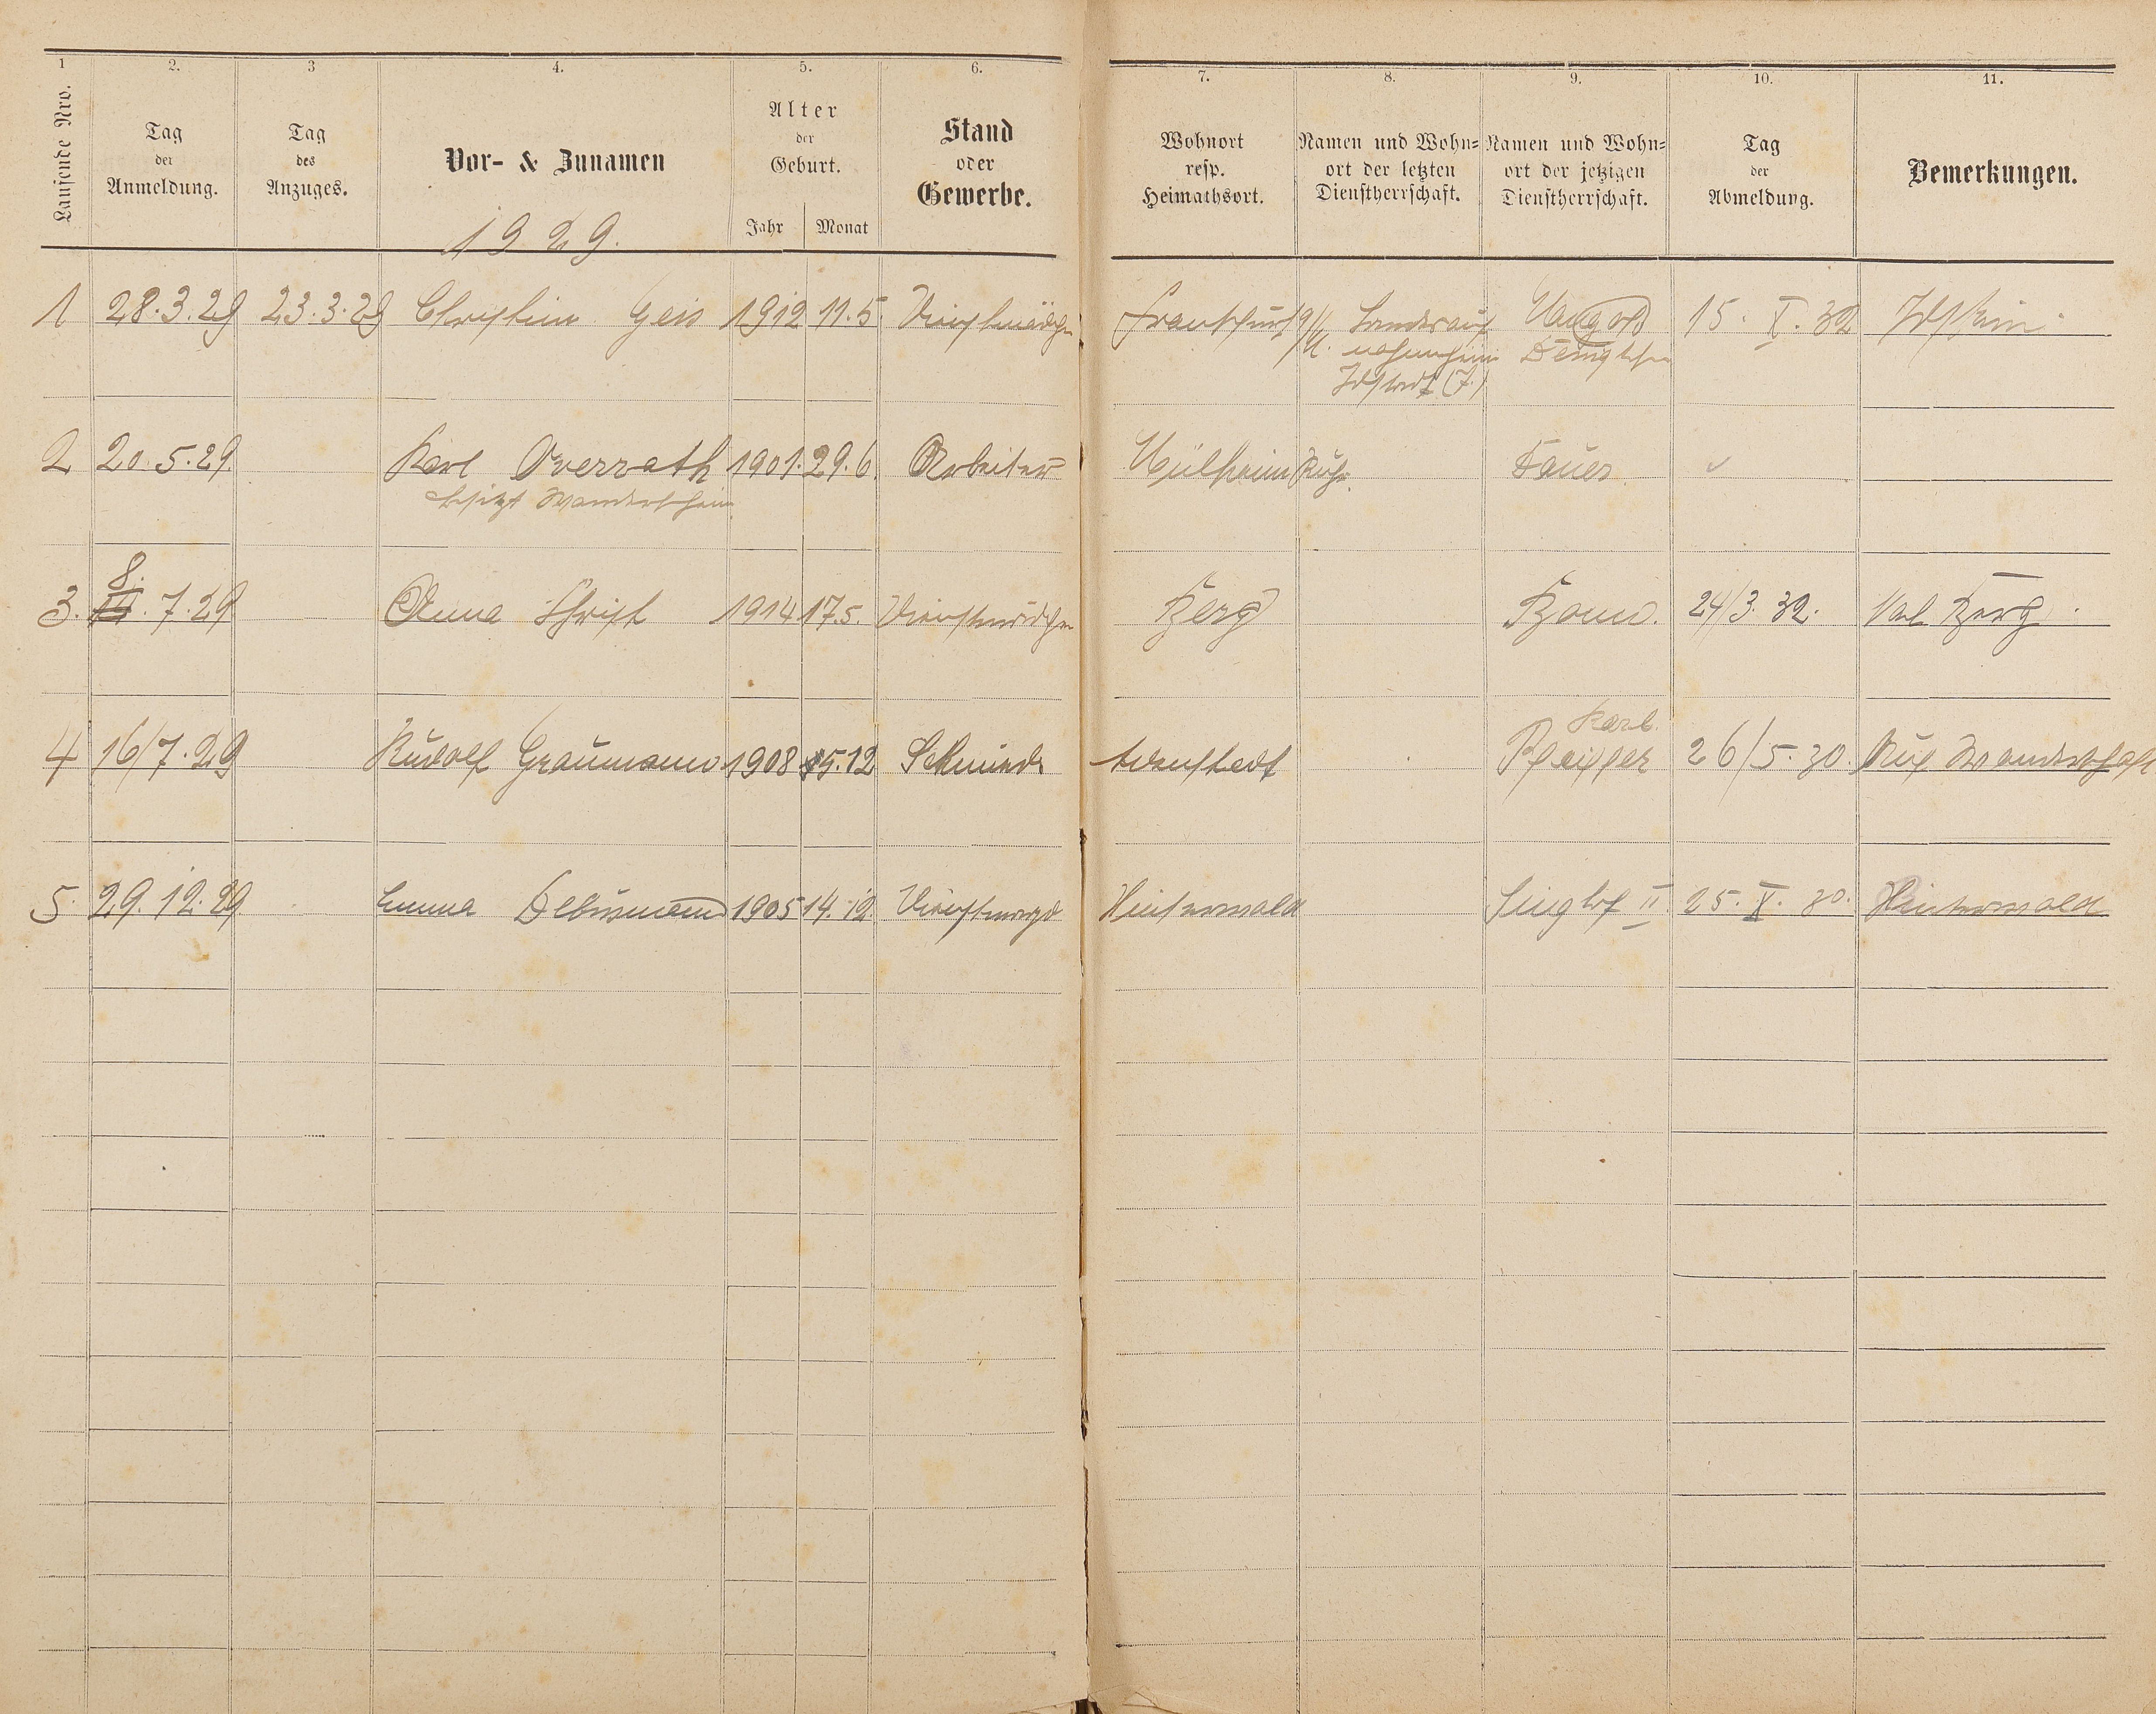 1 2. 3 4. 5. 6. 7. 8. 9. 10. 11.
Laufende Nro.
Tag
der
Anmeldung.
Tag
des
Anzuges.
Vor- & Zunamen
1929.
Alter
der
Geburt.
Jahr Monat
Stand
oder
Gewerbe.
Wohnort
resp.
Heimathsort.
Namen und Wohn-
ort der letzten
Dienstherrschaft.
Namen und Wohn-
ort der jetzigen
Dienstherrschaft.
Tag
der
Abmeldung.
Bemerkungen.
1 28.3.29 23.3.29 Christine Geis 1912 11.5 Dienstmädchen Frankfurt a/M. 15. X. 32 Idstein
2 20.5.29. Karl Overrath 1901. 29.6. Arbeiter Mülheim Ruhr. Bauer
besitzt Wanderschein.
8.
3. 7.29 Anna Christ 1914 17.5. Dienstmädchen Berg 24/3. 32. Berg
Karl
4 16/7.29 Rudolf Graumann 1908 15.12 Schmied Pfeiffer 26/5.30. Auf Wanderschaft
5. 29.12.29 Emma Debusmann 1905 14.12. Dienstmagd Hinterwald Singhof II 25. X. 30. Hinterwald